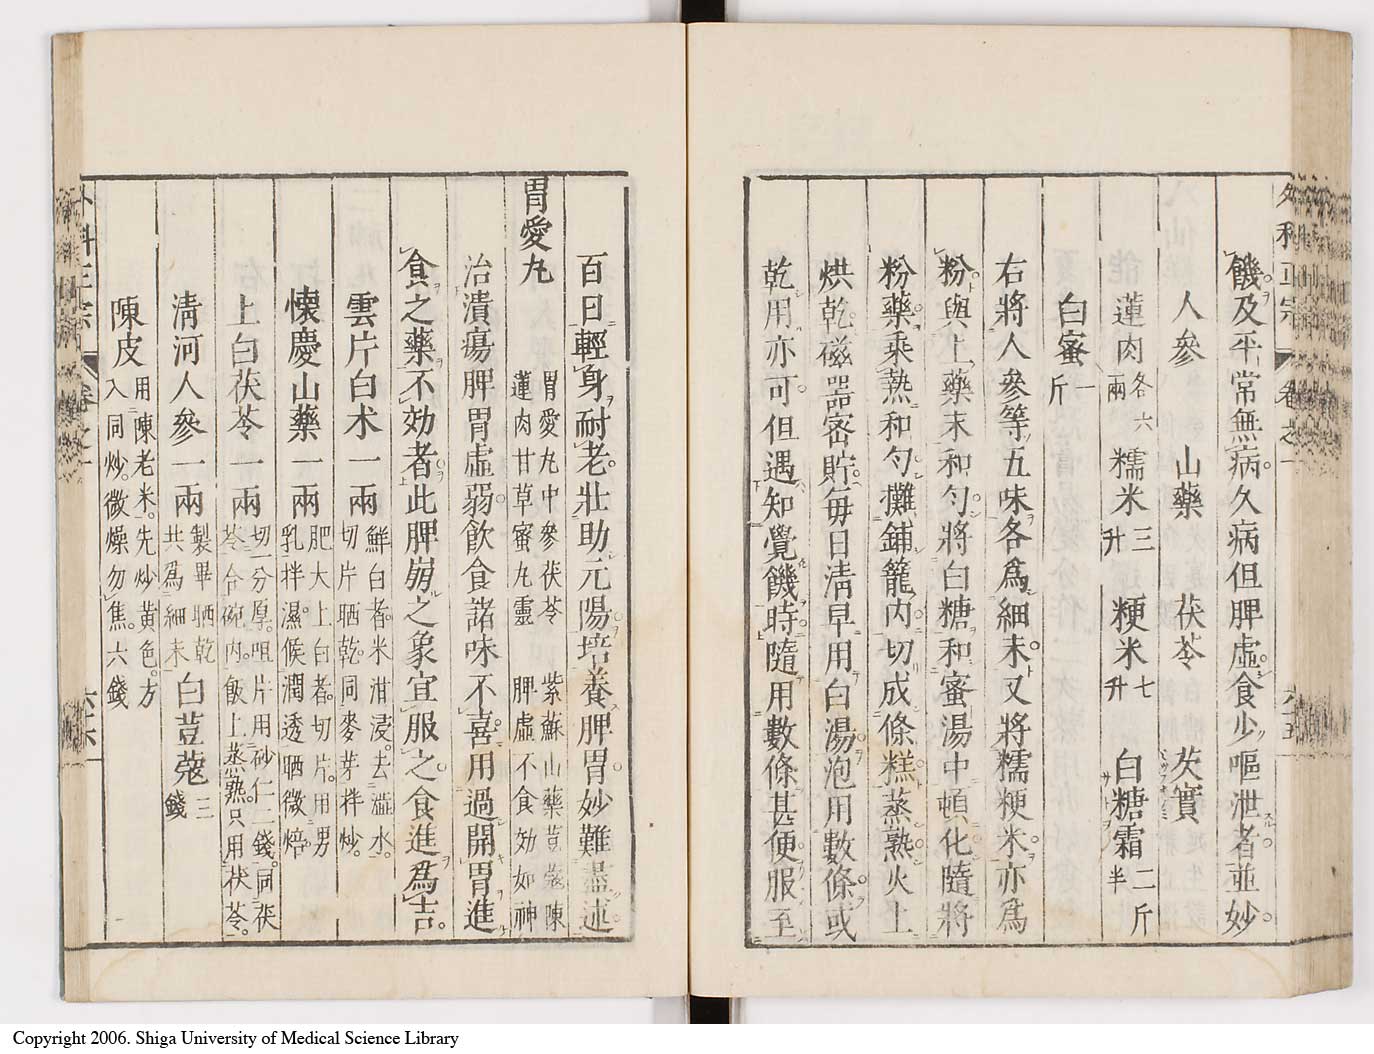 外科正宗 卷之一 六十五
饑及平常無病久病但脾虛食少嘔泄者並妙
人參 山藥 茯苓 芡實
蓮肉各六兩 糯米三升 粳米七升 白糖霜二斤半
白蜜一斤
右將人參等五味各爲細末又將糯粳米亦爲
粉與上藥末和勻將白糖和蜜湯中頓化隨將
粉藥乘熱和勻攤鋪籠內切成條糕蒸熟火上
烘乾磁器密貯毎日淸早用白湯泡用數條或
乾用亦可但遇知覺饑時隨用數條甚便服至
百日輕身耐老壯助元陽培養脾胃妙難盡述
胃愛丸 胃愛丸中參茯苓 紫蘇山藥荳蔻陳
蓮肉甘草蜜丸靈 脾虛不食効如神
治潰瘍脾胃虛弱飮食諸味不喜用過開胃進
食之藥不効者此脾崩之象宜服之食進爲吉
雲片白朮一兩 鮮白者米泔浸去澁水切片晒乾同麥芽拌炒
懷慶山藥一兩 肥大上白者切片用男乳拌濕候潤透晒微焙
上白茯苓一兩 切一分厚咀片用砂仁二錢同茯苓合碗內飯上蒸熟只用茯苓
淸河人參一兩 製畢晒乾共爲細末 白荳蔻三錢
陳皮 用陳老米先炒黃色方入同炒微燥勿焦六錢
外科正宗 卷之一 六十六
Copyright 2006. Shiga University of Medical Science Library